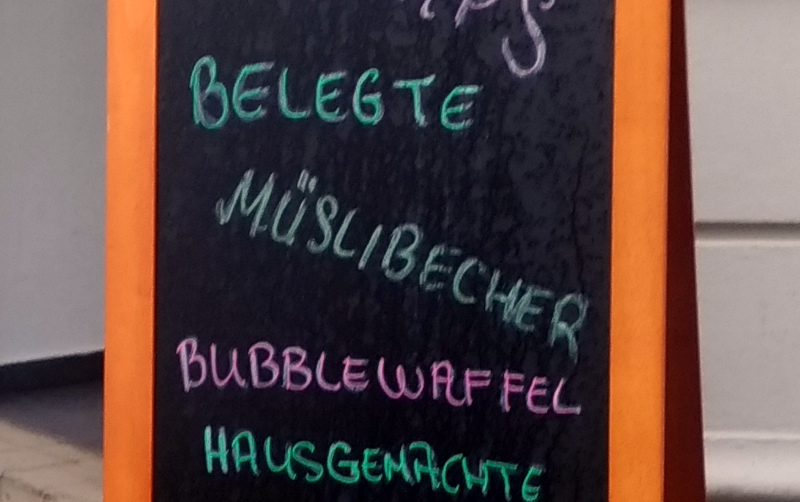 BELEGTE
MÜSLIBECHER
BUBBLEWAFFEL
HAUSGEMACHTE